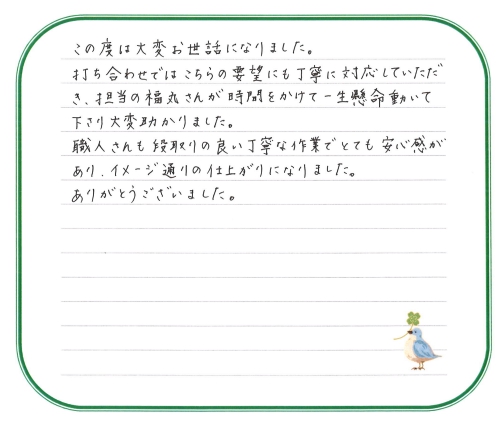 この度は大変お世話になりました。
打ち合わせではこちらの要望にも丁寧に対応していただ
き、担当の福丸さんが時間をかけて一生懸命動いて
下さり大変助かりました。
職人さんも段取りの良い丁寧な作業でとても安心感が
あり、イメージ通りの仕上がりになりました。
ありがとうございました。